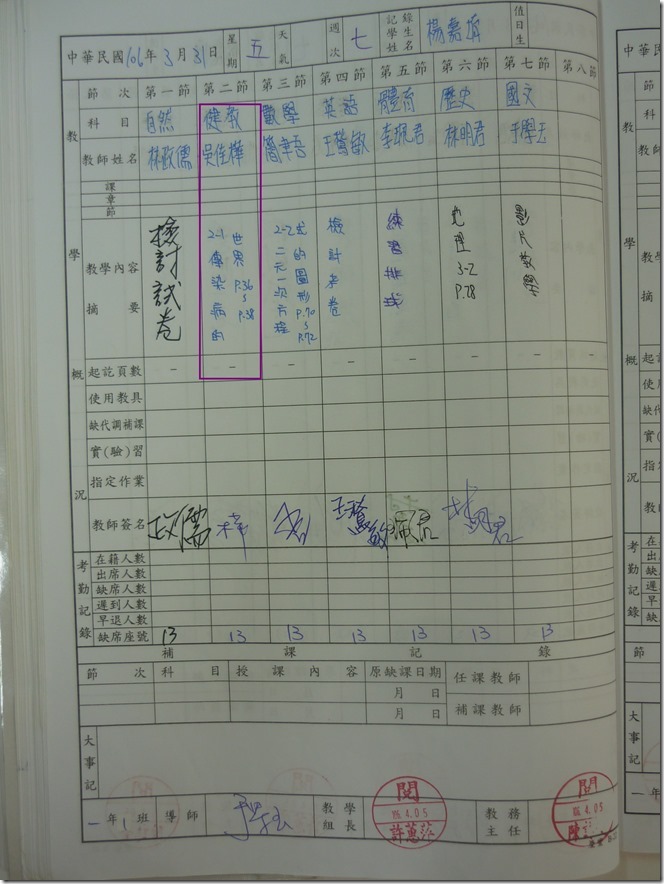 中華民國106年3月31日 星期 五 天氣 週次 七 記錄學生姓名 楊嘉 值日生
節次 第一節 第二節 第三節 第四節 第五節 第六節 第七節 第八節
科目 自然 健教 數學 英語 體育 歷史 國文
教師姓名 林政儒 吳佳樺 簡幸吾 王鶯敏 李珮君 林明君 于學玉
課
章
節
教學概況
教學內容摘要 檢討試卷 2-1傳染病的世界 P.36~P.38 2-2二元一次方程式的圖形 P.70~P.72 檢討考卷 練習排球 3-2 P.78 影片教學
起訖頁數 – – – – – – – –
使用教具
缺代調補課
實(驗)習
指定作業
教師簽名 政儒 樺 王鶯敏 珮君 林明君
考勤記錄
在籍人數
出席人數
缺席人數
遲到人數
早退人數
缺席座號 13 13 13 13 13 13 13
補課記錄
節次 科目 授課內容 原缺課日期 任課教師
月 日
月 日 補課教師
大事記
一年1班 導師 教學組長 閱 106.4.05 許蕙 教務主任 閱 106.4.05 陳